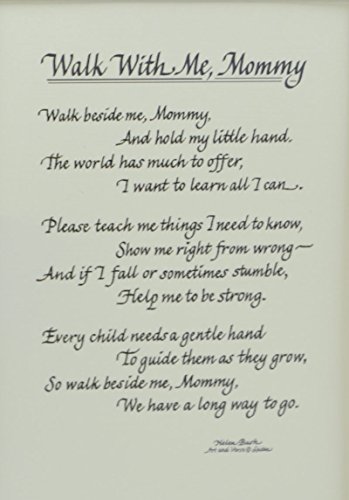 Walk With Me, Mommy
Walk beside me, Mommy,
And hold my little hand.
The world has much to offer,
I want to learn all I can.
Please teach me things I need to know,
Show me right from wrong—
And if I fall or sometimes stumble,
Help me to be strong.
Every child needs a gentle hand
To guide them as they grow,
So walk beside me, Mommy,
We have a long way to go.
Helen Bush
Art and Verse ©